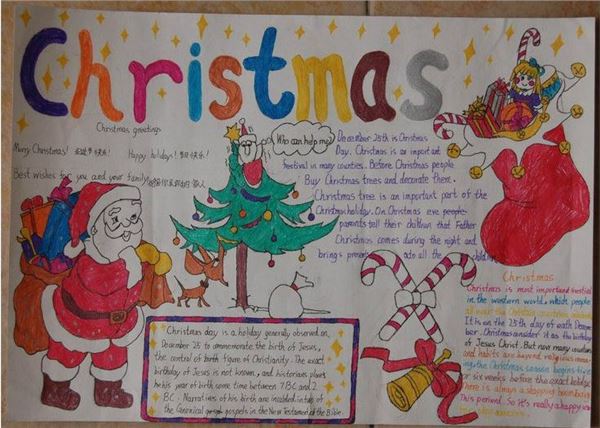 Christmas
Christmas greetings
Merry Christmas! 圣诞节快乐!
Happy holidays! 节日快乐!
Best wishes for you and your family!
Who can help me?
December 25th is Christmas
Day. Christmas is an important
festival in many counties. Before Christmas people
Buy Christmas trees and decorate them.
Christmas tree is an important part of the
Christmas holiday. On Christmas eve people
parents tell their children that Father
Christmas comes during the night and
brings presents to all the children
Christmas day is a holiday generally observed on
December 25 to commemorate the birth of Jesus,
the central of birth figure of Christianity. The exact
birthday of Jesus is not known, and historians place
his year of birth some time between 7 BC and 2
BC. Narratives of his birth are included in two of
the Canonical gospels in the New Testament of the Bible
Christmas
Christmas is most important festival
in the western world, which people
all over the Christian countries
It is on the 25th day of Decem
ber. Christians consider it as the birthday
of Jesus Christ. But now many countries
and habits are beyond religious meaning
the Christmas season begins five
or six weeks before the exact holiday
There is always a shopping boom during
This period. So it's really a happy